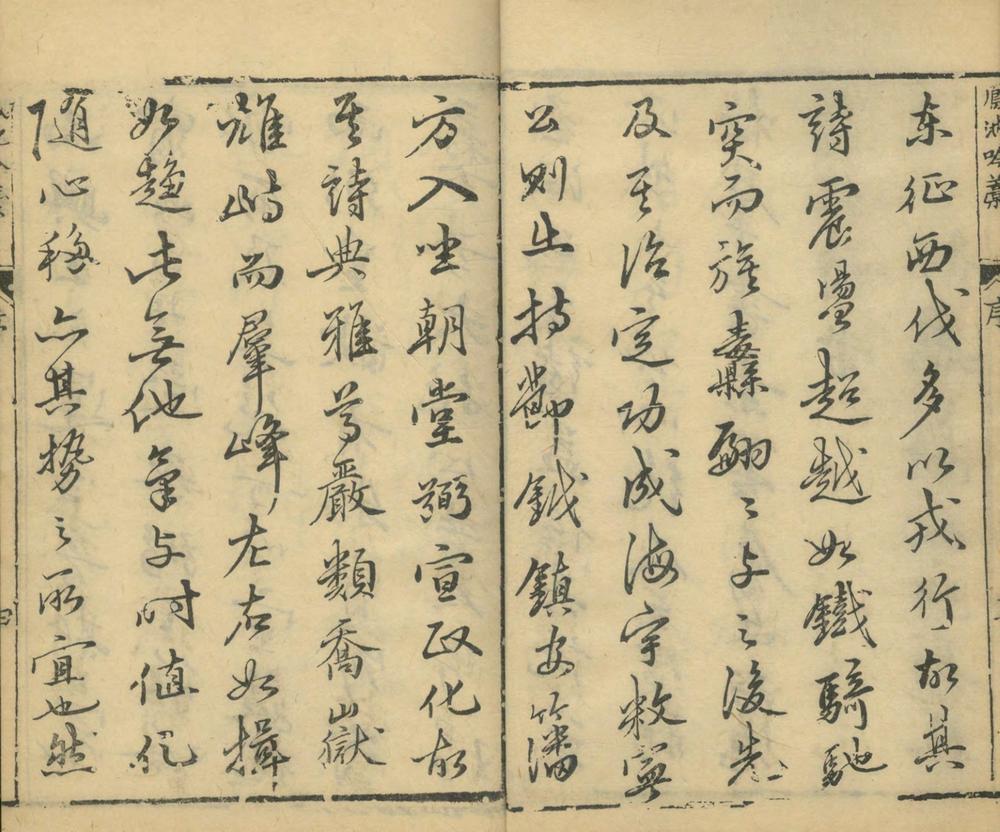 東征西伐多以戎行故其
詩震盪超越如鐵騎馳
突而旌纛翩〻與之後先
及其治定功成海宇敉寧
公則出持節鉞鎮安藩
方入坐朝堂弼宣政化故
其詩典雅尊嚴類喬嶽
雄峙而羣峰左右如揖
如趨此無他氣與時值化
隨心移亦其勢之所宜也然
序